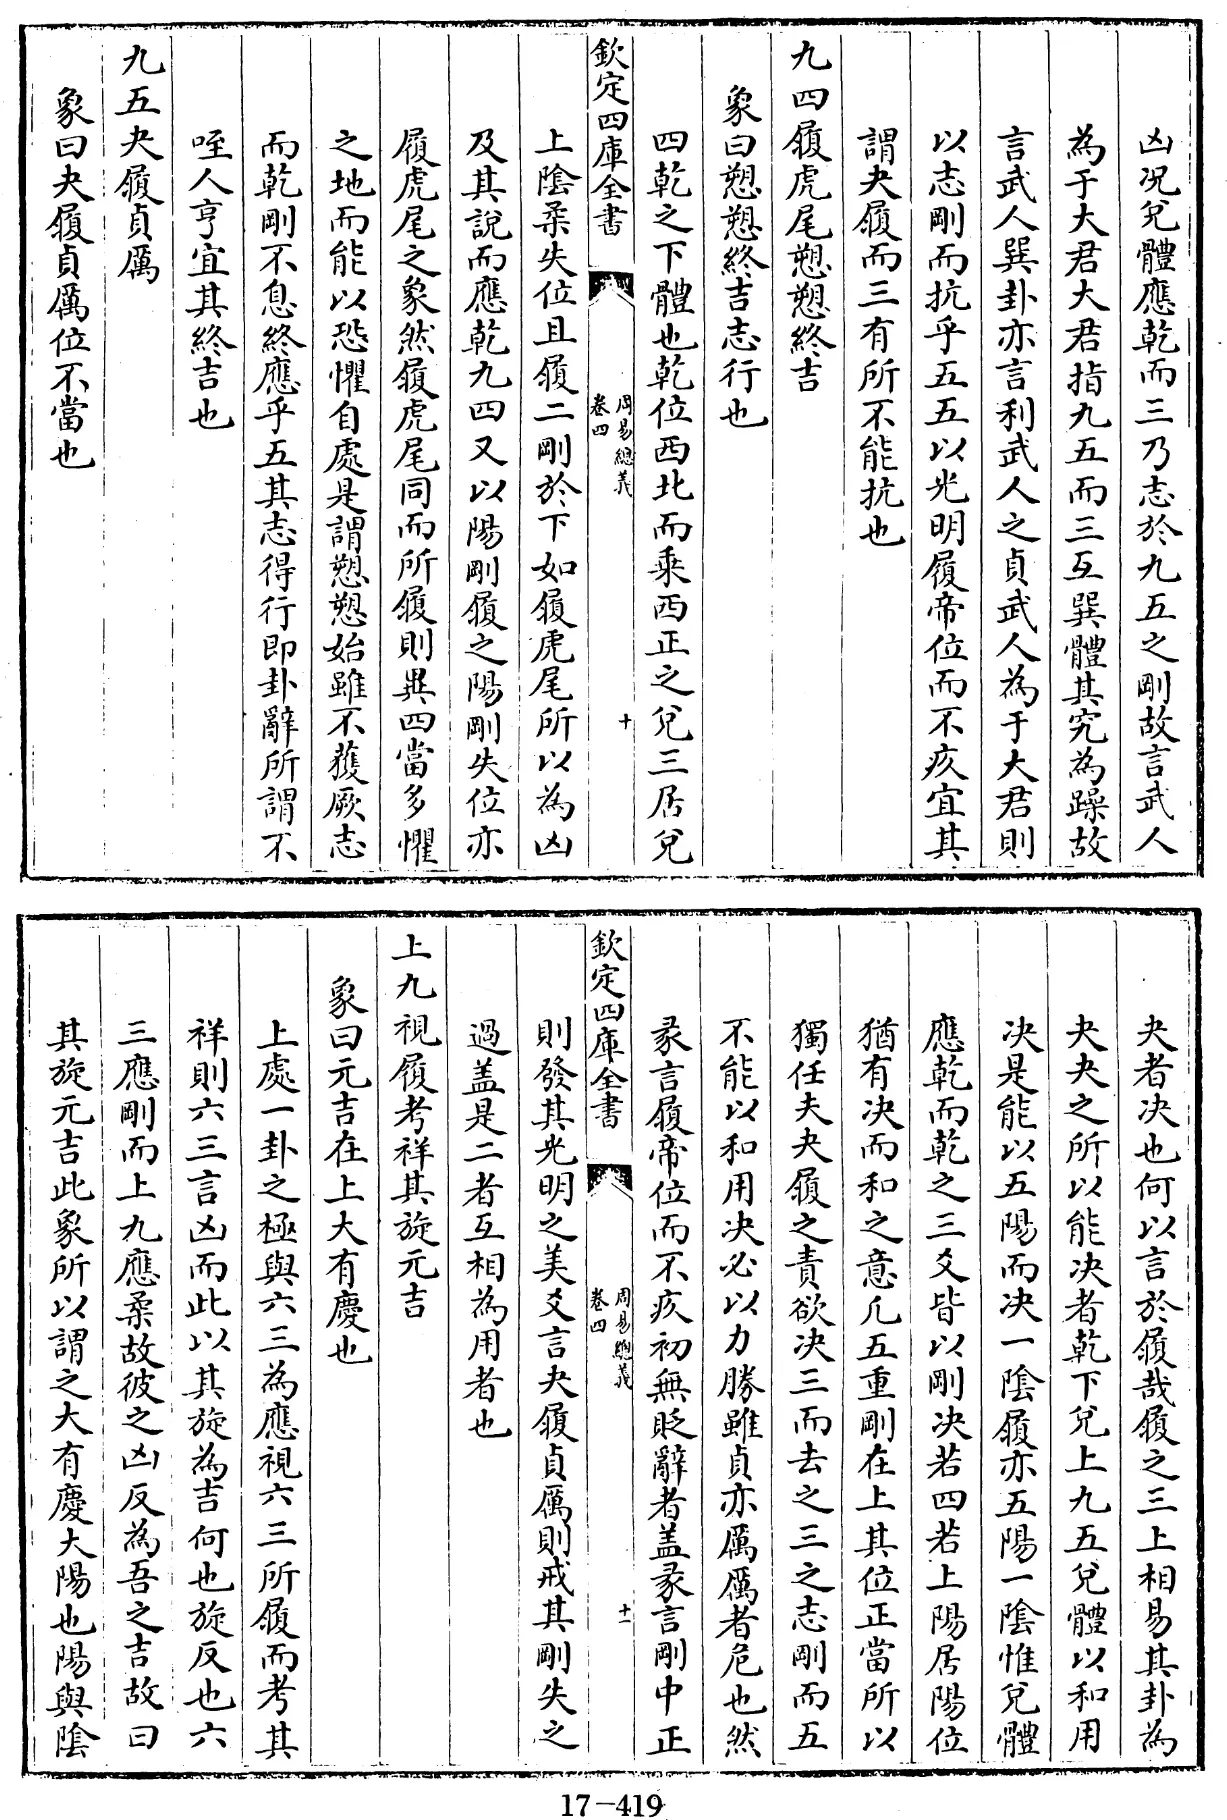 凶况兌體應乾而三乃志於九五之剛故言武人
為于大君大君指九五而三互巽體其究為躁故
言武人巽卦亦言利武人之貞武人為于大君則
以志剛而抗乎五五以光明履帝位而不疚宜其
謂夬履而三有所不能抗也
九四履虎尾愬愬終吉
象曰愬愬終吉志行也
四乾之下體也乾位西北而乘西正之兌三居兌
欽定四庫全書
周易總義
卷四
十
上陰柔失位且履二剛於下如履虎尾所以為凶
及其說而應乾九四又以陽剛履之陽剛失位亦
履虎尾之象然履虎尾同而所履則異四當多懼
之地而能以恐懼自處是謂愬愬始雖不獲厥志
而乾剛不息終應乎五其志得行即卦辭所謂不
咥人亨宜其終吉也
九五夬履貞厲
象曰夬履貞厲位不當也
夬者决也何以言於履哉履之三上相易其卦為
夬夬之所以能决者乾下兌上九五兌體以和用
决是能以五陽而决一陰履亦五陽一陰惟兌體
應乾而乾之三爻皆以剛决若四若上陽居陽位
猶有决而和之意凡五重剛在上其位正當所以
獨任夫夬履之責欲决三而去之三之志剛而五
不能以和用决必以力勝雖貞亦厲厲者危也然
彖言履帝位而不疚初無貶辭者盖彖言剛中正
欽定四庫全書
周易總義
卷四
十一
則發其光明之美爻言夬履貞厲則戒其剛失之
過盖是二者互相為用者也
上九視履考祥其旋元吉
象曰元吉在上大有慶也
上處一卦之極與六三為應視六三所履而考其
祥則六三言凶而此以其旋為吉何也旋反也六
三應剛而上九應柔故彼之凶反為吾之吉故曰
其旋元吉此象所以謂之大有慶大陽也陽與陰
17-419